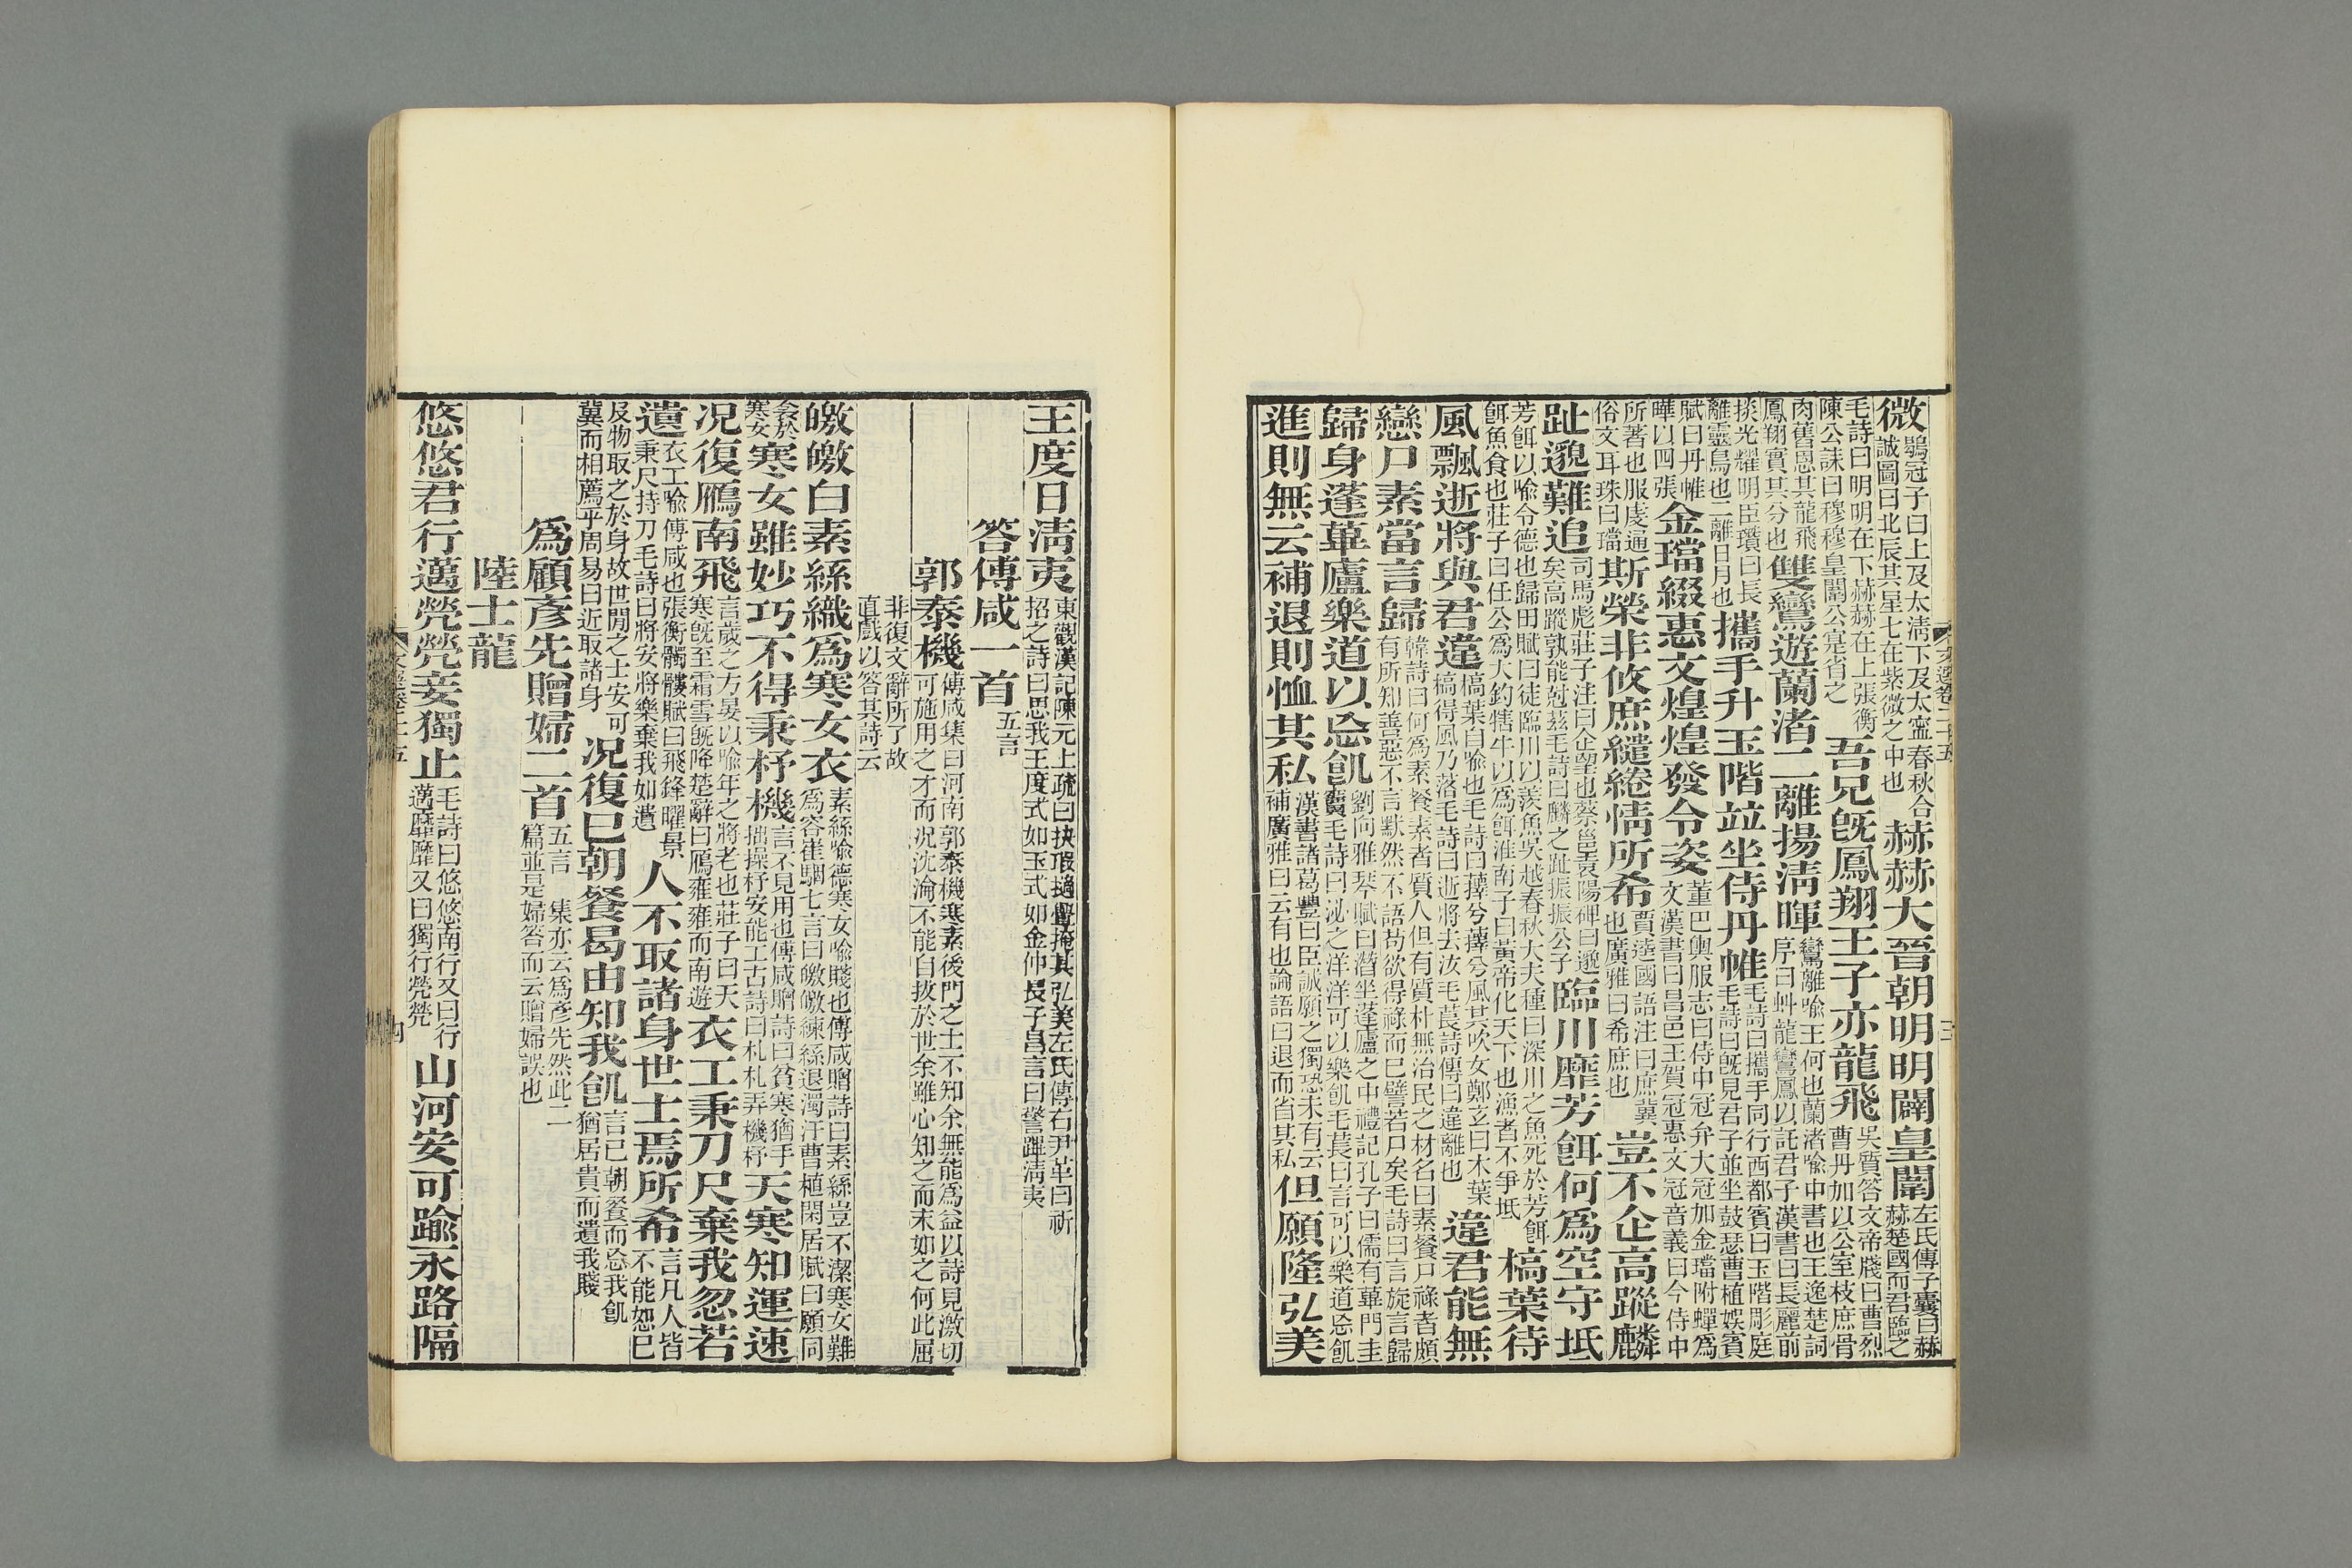 微鶡冠子曰上及太淸下及太寧春秋合誠圖曰北辰其星七在紫微之中也赫赫大晉朝明明闢皇闈左氏傳子囊曰赫赫楚國而君臨之
毛詩曰明明在下赫赫在上張衡陳公誄曰穆穆皇闈公寔省之吾兄旣鳳翔王子亦龍飛吳質答文帝牋曰曹烈曹丹加以公室枝庶骨
肉舊恩其龍飛鳳翔實其分也雙鸞遊蘭渚二離揚淸暉鸞離喻王何也蘭渚喻中書也王逸楚詞序曰虬龍鸞鳳以託君子漢書曰長麗前
掞光耀明臣瓚曰長離靈鳥也二離日月也攜手升玉階竝坐侍丹帷毛詩曰攜手同行西都賓曰玉階彫庭毛詩曰旣見君子並坐鼓瑟曹植娛賓
賦曰丹帷曄以四張金璫綴惠文煌煌發令姿董巴輿服志曰侍中冠弁大冠加金璫附蟬爲文漢書曰昌邑王賀冠惠文冠音義曰今侍中
所著也服虔通俗文耳珠曰璫斯榮非攸庶繾綣情所希賈逵國語注曰庶冀也廣雅曰希庶也豈不企高蹤麟
趾邈難追司馬彪莊子注曰企望也蔡邕袁陽碑曰邈矣高蹤孰能尅茲毛詩曰麟之趾振振公子臨川靡芳餌何爲空守坻
芳餌以喻令德也歸田賦曰徒臨川以羨魚吳越春秋大夫種曰深川之魚死於芳餌餌魚食也莊子曰任公爲大釣犗牛以爲餌淮南子曰黃帝化天下也漁者不爭坻槁葉待
風飄逝將與君違槁葉自喻也毛詩曰蘀兮蘀兮風其吹女鄭玄曰木葉槁得風乃落毛詩曰逝將去汝毛萇詩傳曰違離也違君能無
戀尸素當言歸韓詩曰何爲素餐素者質人但有質朴無治民之材名曰素餐尸祿者頗有所知善惡不言默然不語苟欲得祿而已譬若尸矣毛詩曰言旋言歸
歸身蓬蓽廬樂道以忘飢劉向雅琴賦曰潛坐蓬廬之中禮記孔子曰儒有蓽門圭竇毛詩曰泌之洋洋可以樂飢毛萇曰言可以樂道忘飢
進則無云補退則恤其私漢書諸葛豐曰臣誠願之獨恐未有云補廣雅曰云有也論語曰退而省其私但願隆弘美
王度日淸夷東觀漢記陳元上疏曰抉瑕擿釁掩其弘美左氏傳右尹革曰祈招之詩曰思我王度式如玉式如金仲長子昌言曰警蹕淸夷
答傅咸一首五言
郭泰機傅咸集曰河南郭泰機寒素後門之士不知余無能爲益以詩見激切可施用之才而况沈淪不能自拔於世余雖心知之而末如之何此屈
非復文辭所了故直戲以答其詩云
皦皦白素絲織爲寒女衣素絲喻德寒女喻賤也傅咸贈詩曰素絲豈不潔寒女難爲容崔駰七言曰皦皦練絲退濁汙曹植閑居賦曰願同
衾於寒女寒女雖妙巧不得秉杼機言不見用也傅咸贈詩曰貧寒猶手拙操杼安能工古詩曰札札弄機杼天寒知運速
况復鴈南飛言歲之方晏以喻年之將老也莊子曰天寒旣至霜雪旣降楚辭曰鴈雍雍而南遊衣工秉刀尺棄我忽若
遺衣工喻傅咸也張衡髑髏賦曰飛鋒曜景秉尺持刀毛詩曰將安將樂棄我如遺人不取諸身世士焉所希言凡人皆不能恕己
及物取之於身故世閒之士安可冀而相薦乎周易曰近取諸身况復已朝餐曷由知我飢言已朝餐而忘我飢猶居貴而遺我賤
爲顧彥先贈婦二首五言 集亦云爲彥先然此二篇並是婦答而云贈婦誤也
陸士龍
悠悠君行邁煢煢妾獨止毛詩曰悠悠南行又曰行邁靡靡又曰獨行煢煢山河安可踰永路隔